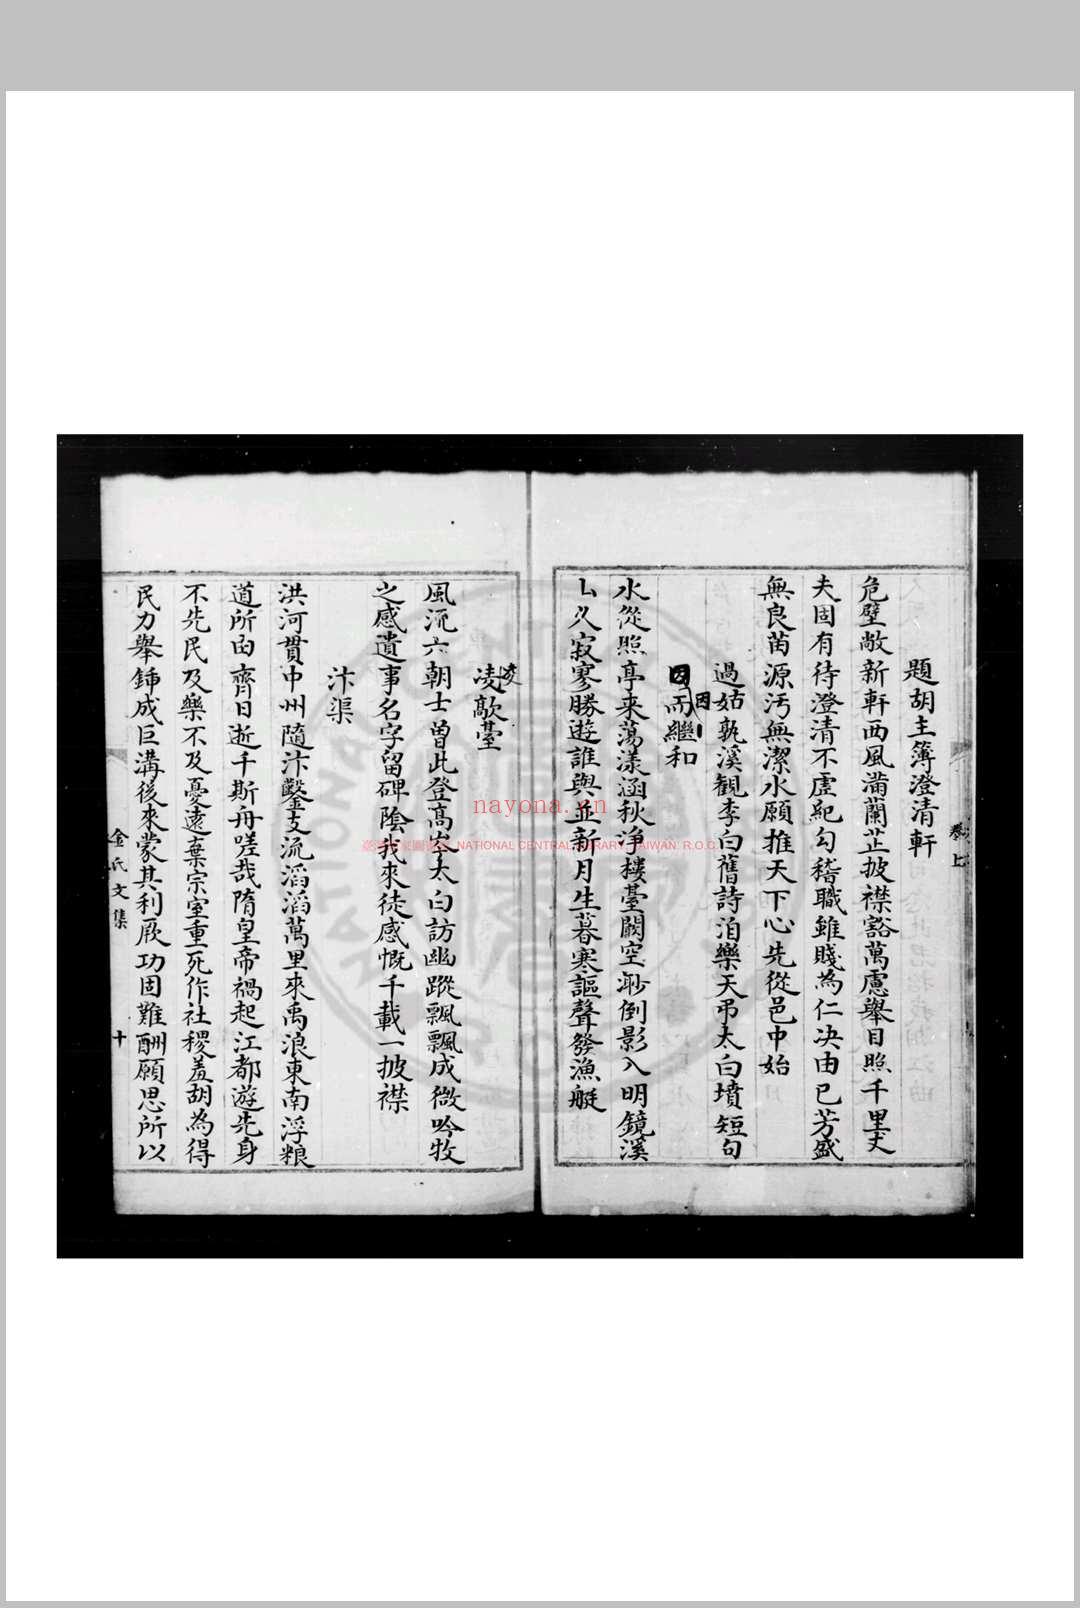 題胡主簿澄清軒
危壁敞新軒西風滿蘭芷披襟豁萬慮舉目照千里丈
夫固有待澄清不虛紀勾稽職雖賤為仁决由已芳盛
無良苗源汚無潔水願推天下心先從邑中始
過姑孰溪觀李白舊詩洎樂天弔太白墳短句
因而繼和
因
水從照亭来蕩漾涵秋淨樓臺闕空渺倒影入明鏡溪
山久寂寥勝遊誰與並新月生暮寒謳聲發漁艇
凌歊臺
凌
風流六朝士曾此登高岑太白訪幽蹤飄飄成微吟牧
之感遺事名字留碑陰我來徒感慨千載一披襟
汴渠
洪河貫中州隨汴鑿支流滔滔萬里來禹浪東南浮粮
道所由齊日逝千斯舟嗟哉隋皇帝禍起江都遊先身
不先民及樂不及憂遠棄宗室重死作社稷羞胡為得
民力舉鍤成巨溝後來蒙其利厥功固難酬願思所以
卷上
金氏文集
十
nayona.cn
NATIONAL CENTRAL LIBRARY, TAIWAN R.O.C.